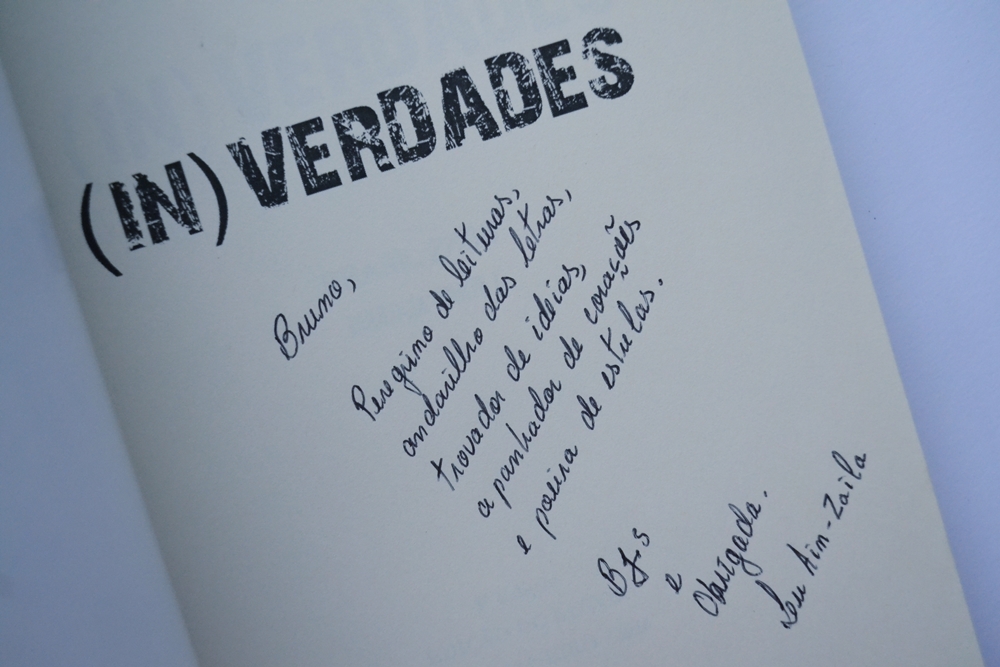 (IN)VERDADES
Bruno,
Peregrino de leituras,
andarilho das letras,
trovador de ideias,
apanhador de corações
e poeira de estrelas.
BJs
e
Obrigada.
Lu Ain-Zaila